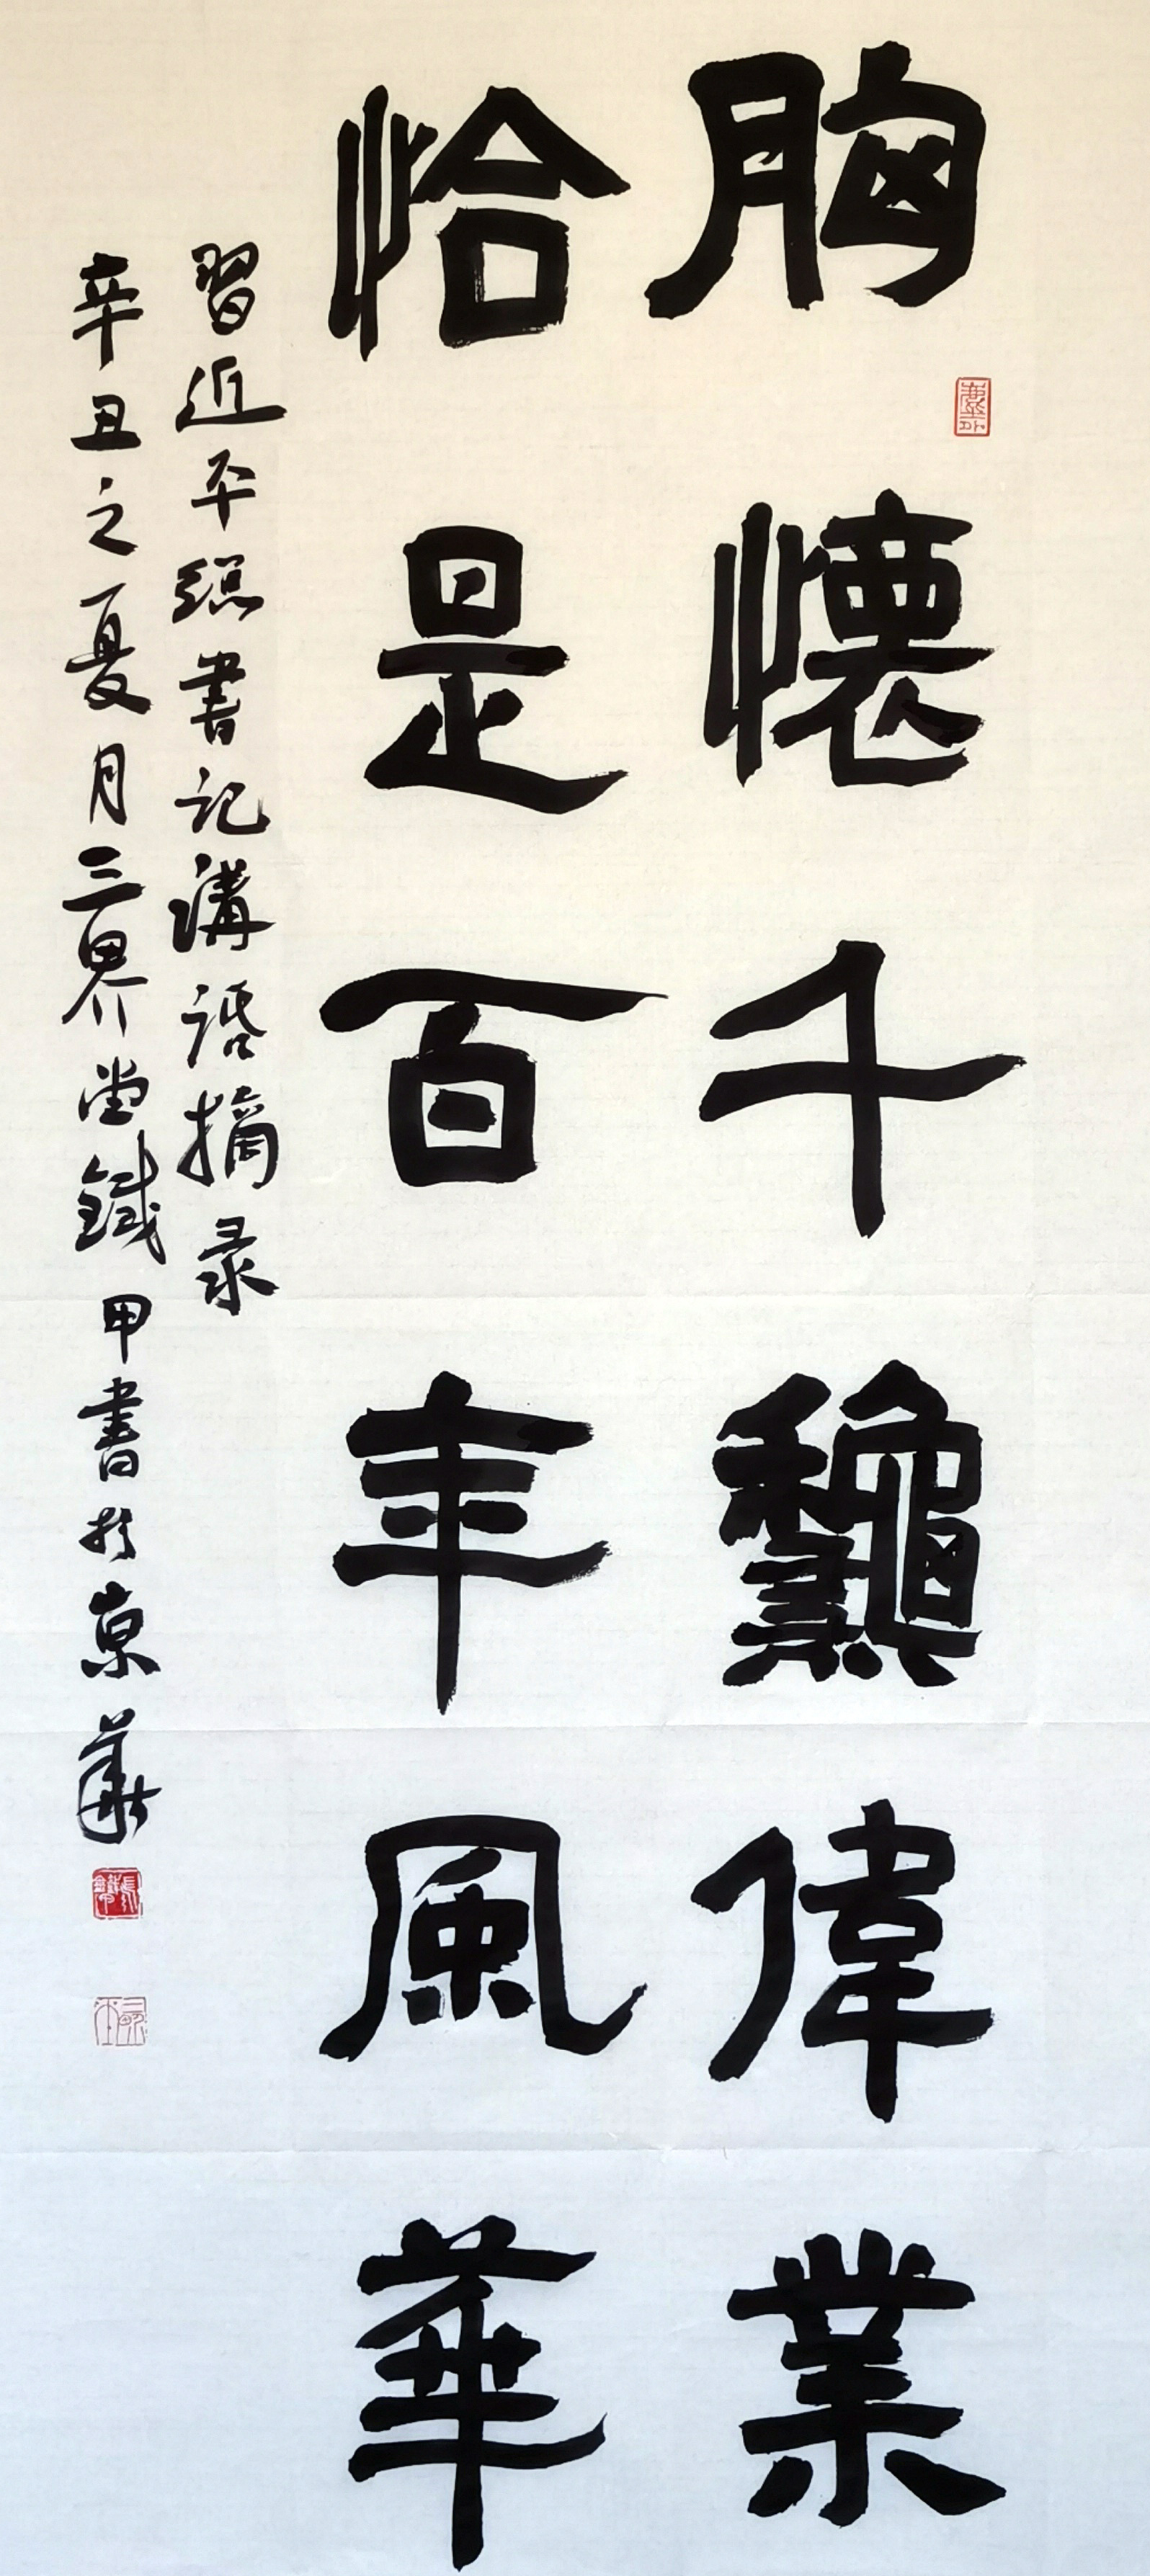 胸懷千龝偉業
恰是百年風華
習近平總書記講話摘录
辛丑之夏月三界堂鐵甲書於京華